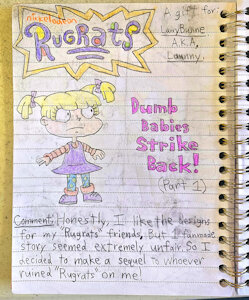 nickelodeon
RUGRATS
A gift for
LanyBunne
A.K.A.
Lawnny.
Dumb
Babies
Strike
Back!
(Part 1)
Comment: Honestly, I like the designs
for my "Rugrats" friends, But fanmade
story seemed extremely unfair. So I
decided to make a sequel to whoever
ruined "Rugrats" on me!